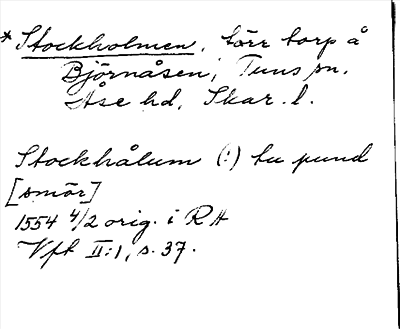 *Stockholmen, förr torp å
Björnåsen, Tuns sn,
Åse hd, Skar. l.
Stockhålum (:) tu pund
[smör]
1554 4/2 orig. i RA
Vft II:1, s. 37.